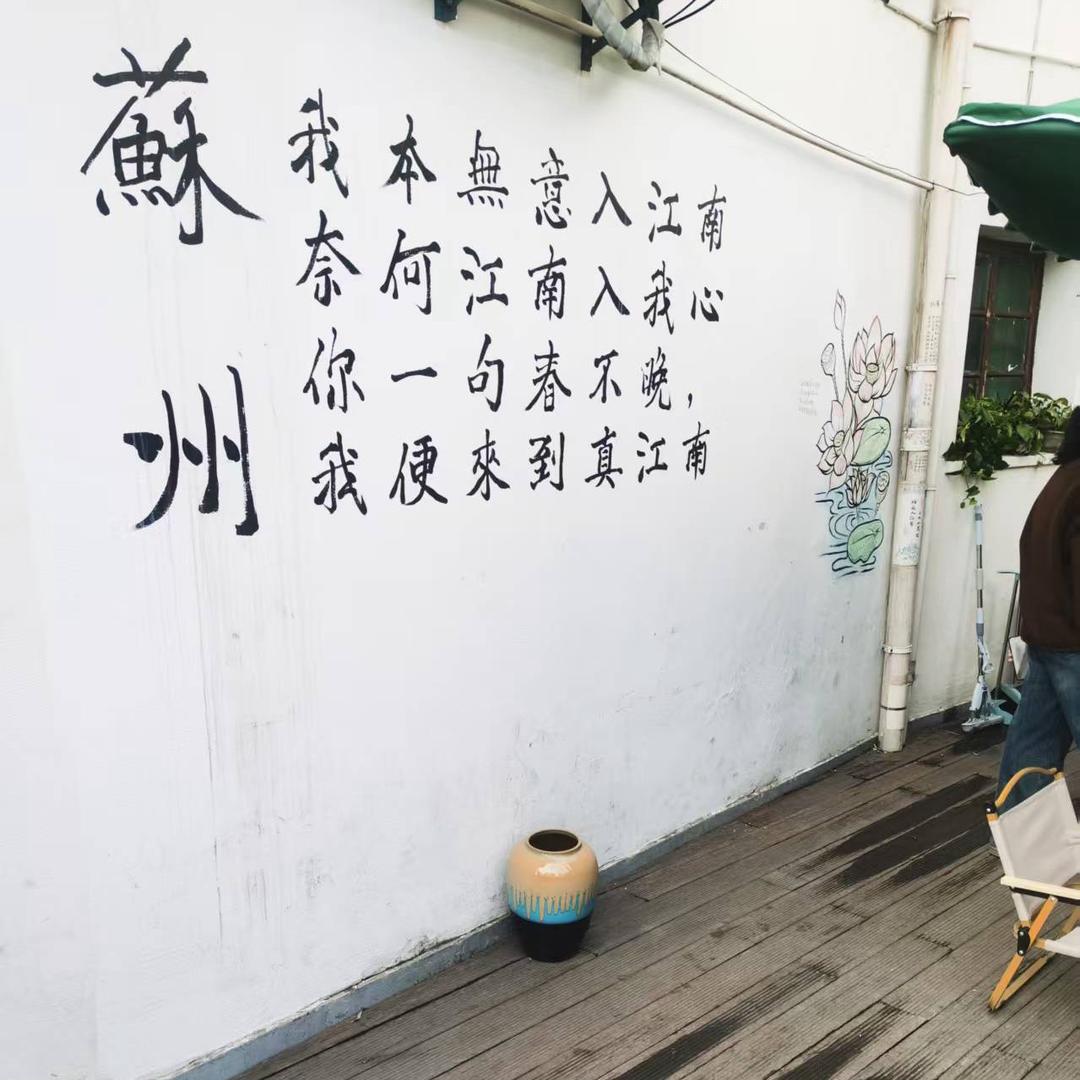 蘇州
我本無意入江南
奈何江南入我心
你一句春不晚，
我便來到真江南